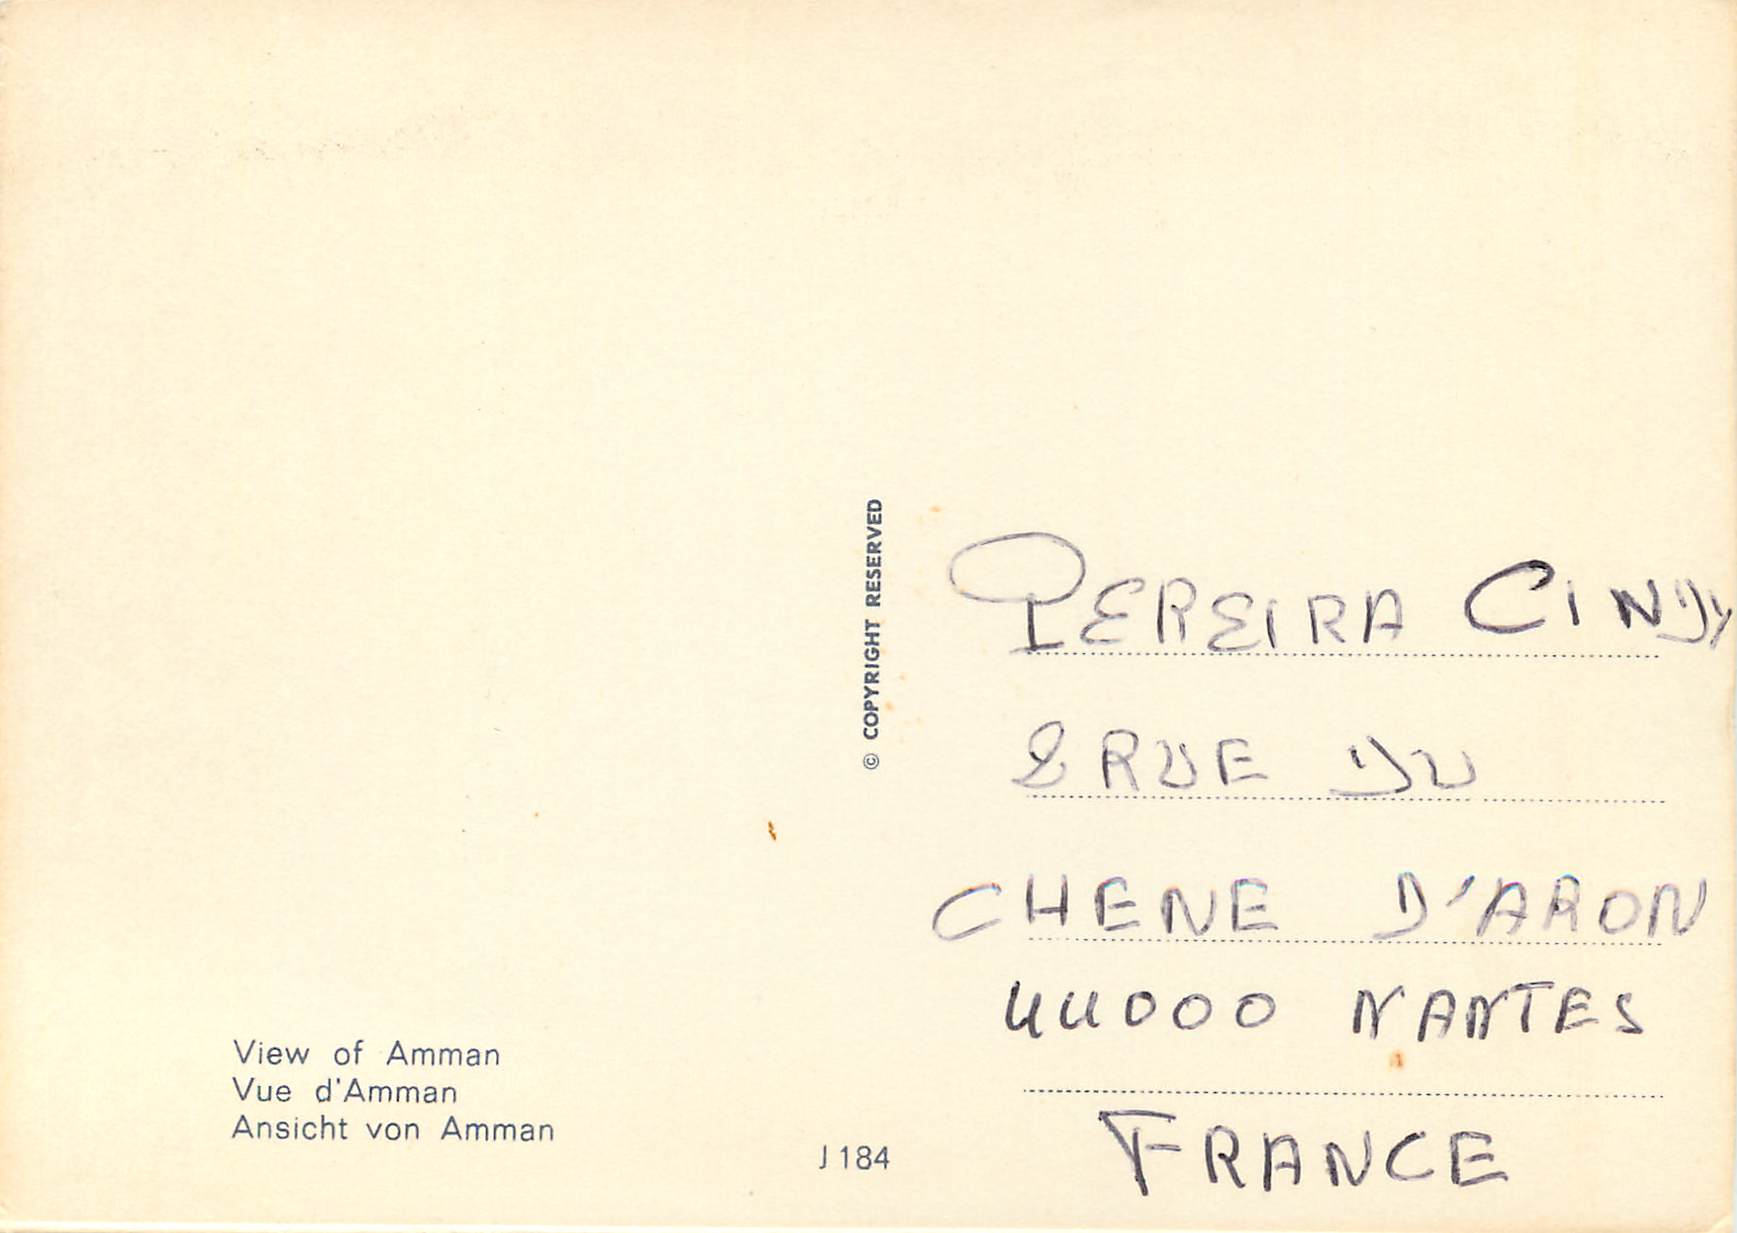 View of Amman
Vue d'Amman
Ansicht von Amman
J 184
© COPYRIGHT RESERVED
PEREIRA CINDY
8 RUE DU
CHENE D'ARON
44000 NANTES
FRANCE